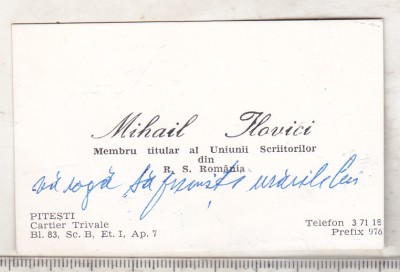 Mihail Ilovici
Membru titular al Uniunii Scriitorilor
din
R. S. România
vă roagă să primiți urările lui
PITEȘTI
Cartier Trivale
Bl. 83, Sc. B, Et. I, Ap. 7
Telefon 3 71 18
Prefix 976